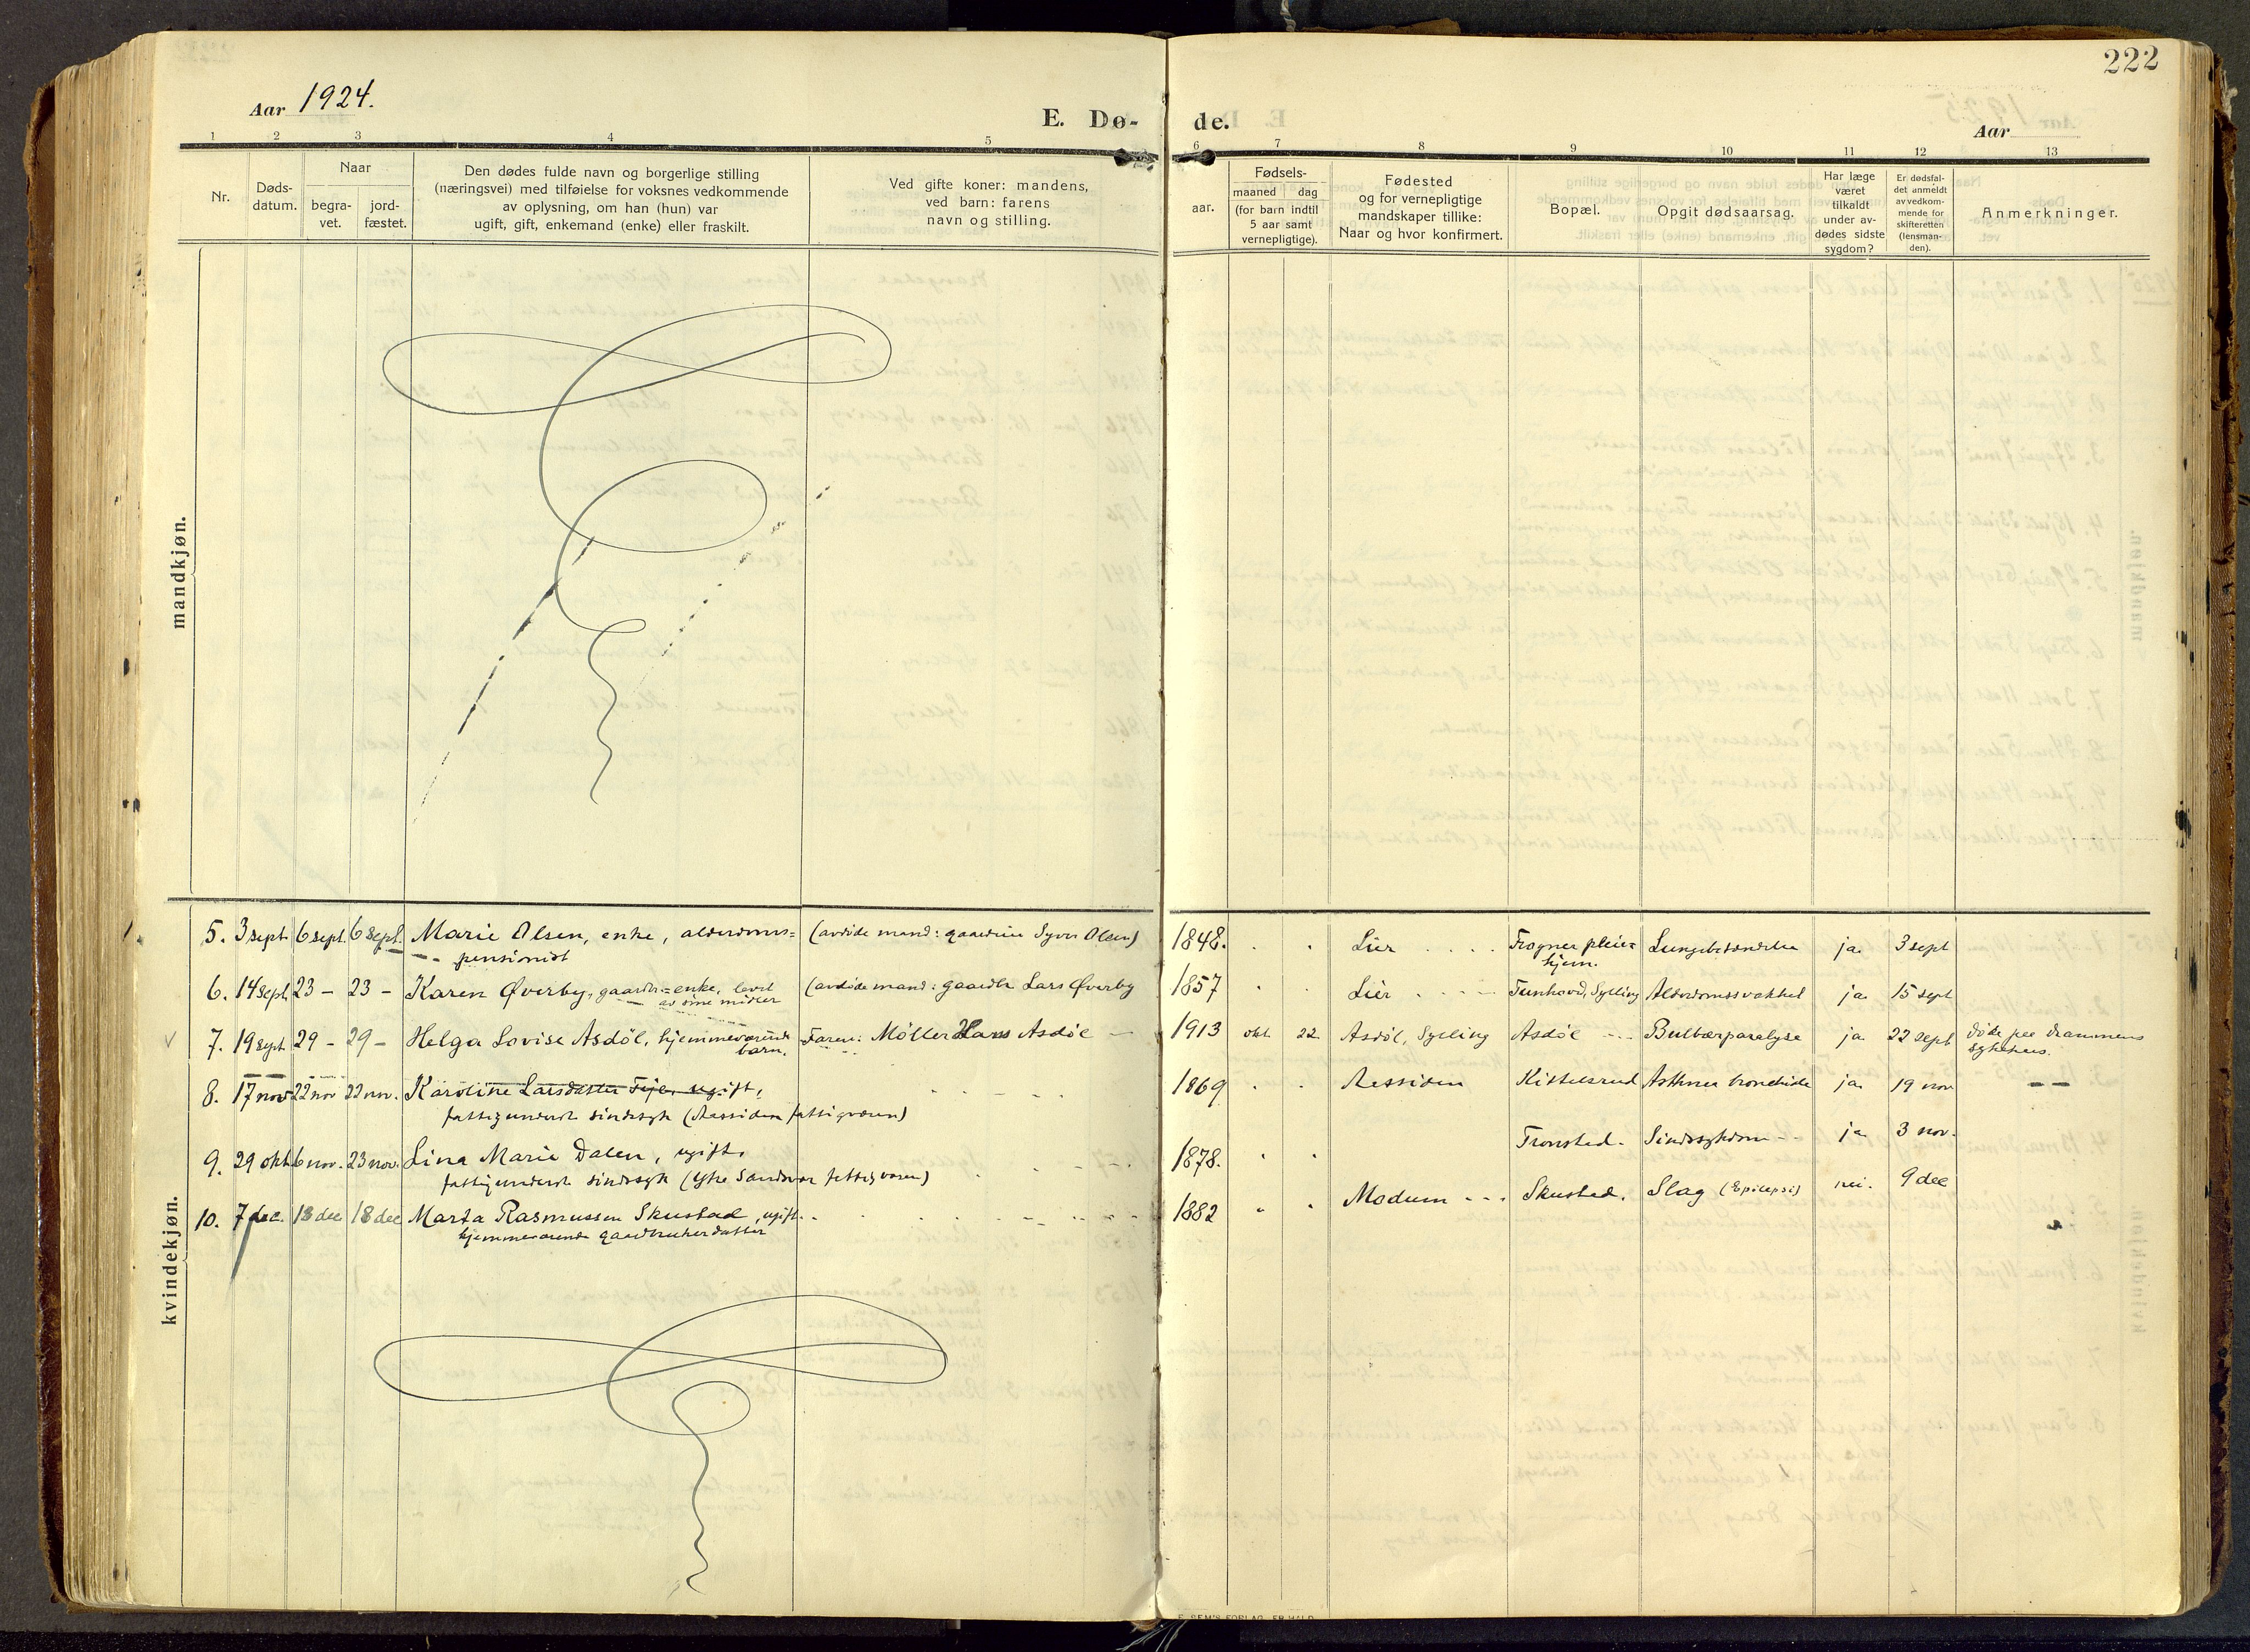 222
Aar 1924.
E. Dø-
de.
Aar
1 2 3 4 5
6 7 8 9 10 11 12 13
Nr.
Døds-
datum.
Naar
begra-
vet.
jord-
fæstet.
Den dødes fulde navn og borgerlige stilling
(næringsvei) med tilføielse for voksnes vedkommende
av oplysning, om han (hun) var
ugift, gift, enkemand (enke) eller fraskilt.
Ved gifte koner: mandens,
ved barn: farens
navn og stilling.
aar.
Fødsels-
maaned dag
(for barn indtil
5 aar samt
vernepligtige).
Fødested
og for vernepligtige
mandskaper tillike:
Naar og hvor konfirmert.
Bopæl.
Opgit dødsaarsag.
Har læge
været
tilkaldt
under av-
dødes sidste
sygdom?
Er dødsfal-
det anmeldt
av vedkom-
mende for
skifteretten
(lensman-
den).
Anmerkninger.
mandkjøn.
kvindekjøn.
5. 3 sept. 6 sept. 6 sept. Marie Olsen, enke, alderdoms= (avdøde mand: Olsen) 1848. Lier Frogner pleie= Lungebetændelse ja 3 sept
pensionist hjem.
6. 14 sept 23 - 23 - Karen Øverby, gaardbr=enke, levet (avdøde mand: gaardbr Lars Øverby 1857 Lier Sylling Alderdomssvakhet ja 15 sept
av sine midler
7. 19 sept 29 - 29 - Helga Lovise Asdøl, hjemmeværende Faren: Møller Hans Asdøl 1913 okt 22 Asdøl, Sylling Asdøl Bulbærparalyse ja 22 sept døde paa Drammens
barn. sykehus.
8. 17 nov 22 nov 22 nov. Karoline Larsdatter ugift, 1869 Aassiden Kittelsrud Asthma bronchiale ja 19 nov
fattigunderst. sindssyk (Aassiden fattigvæsen)
9. 29 okt 6 nov. 23 nov. Lina Marie Dalen, ugift. 1878. Tronstad. Sindssygdom ja 3 nov.
fattigunderst. sindssyk (Ytre Sandsvær fattigvæsen)
10. 7 dec. 13 dec 18 dec Marta Rasmussen Skustad, ugift. 1882 Modum Skustad. Slag (Epilepsi) nei. 9 dec
hjemmeværende gaardbrukerdatter